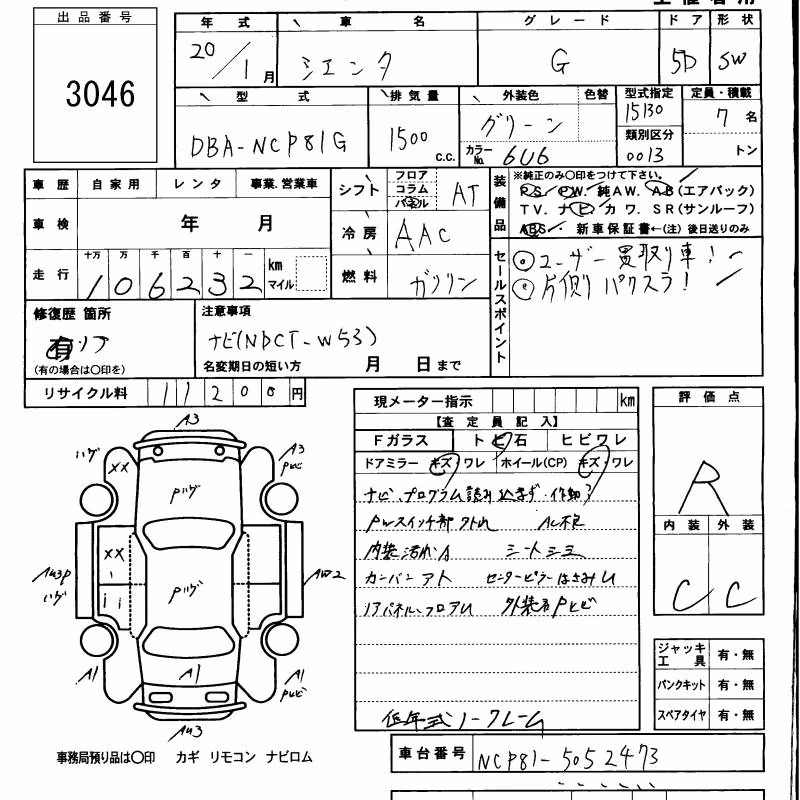 出品番号
3046
年式 車名 グレード ドア 形状
20/1月 シエンタ G 5D SW
型式 排気量 外装色 色替 型式指定 定員・積載
DBA-NCP81G 1500 C.C. グリーン 15130 7名
カラーNo. 6U6 類別区分 0013 トン
車歴 自家用 レンタ 事業.営業車
シフト フロア コラム パネル AT
装備品
※純正のみ○印をつけて下さい。
PS. PW. 純AW. AB(エアバック)
TV. ナビ. カワ. SR(サンルーフ)
ABS. 新車保証書←(注) 後日送りのみ
車検 年 月
冷房 AAC
走行 十万 万 千 百 十 一 km マイル
106232
燃料 ガソリン
セールスポイント
◎ユーザー買取り車!
◎片側パワスラ!
修復歴 箇所
有 リア
(有の場合は○印を)
注意事項
ナビ(NDCT-W53)
名変期日の短い方 月 日まで
リサイクル料 11200円
現メーター指示 km
【査定員記入】
Fガラス トビ石 ヒビワレ
ドアミラー キズ・ワレ ホイール(CP) キズ・ワレ
ナビ、プログラム読み込まず・作動?
PWスイッチ部外れ AC不良
内装汚れ・A シートシミ
カンバンアト センターピラーはさみU
リアパネル、フロアU
低年式ノークレーム
評価点
R
内装 外装
C C
ジャッキ工具 有・無
パンクキット 有・無
スペアタイヤ 有・無
A3
ハゲ
XX
A3
Pハゲ
XX
Pハゲ
ハゲ
AW2
A1
A1
A1
事務局預り品は○印 カギ リモコン ナビロム
車台番号 NCP81-5052473